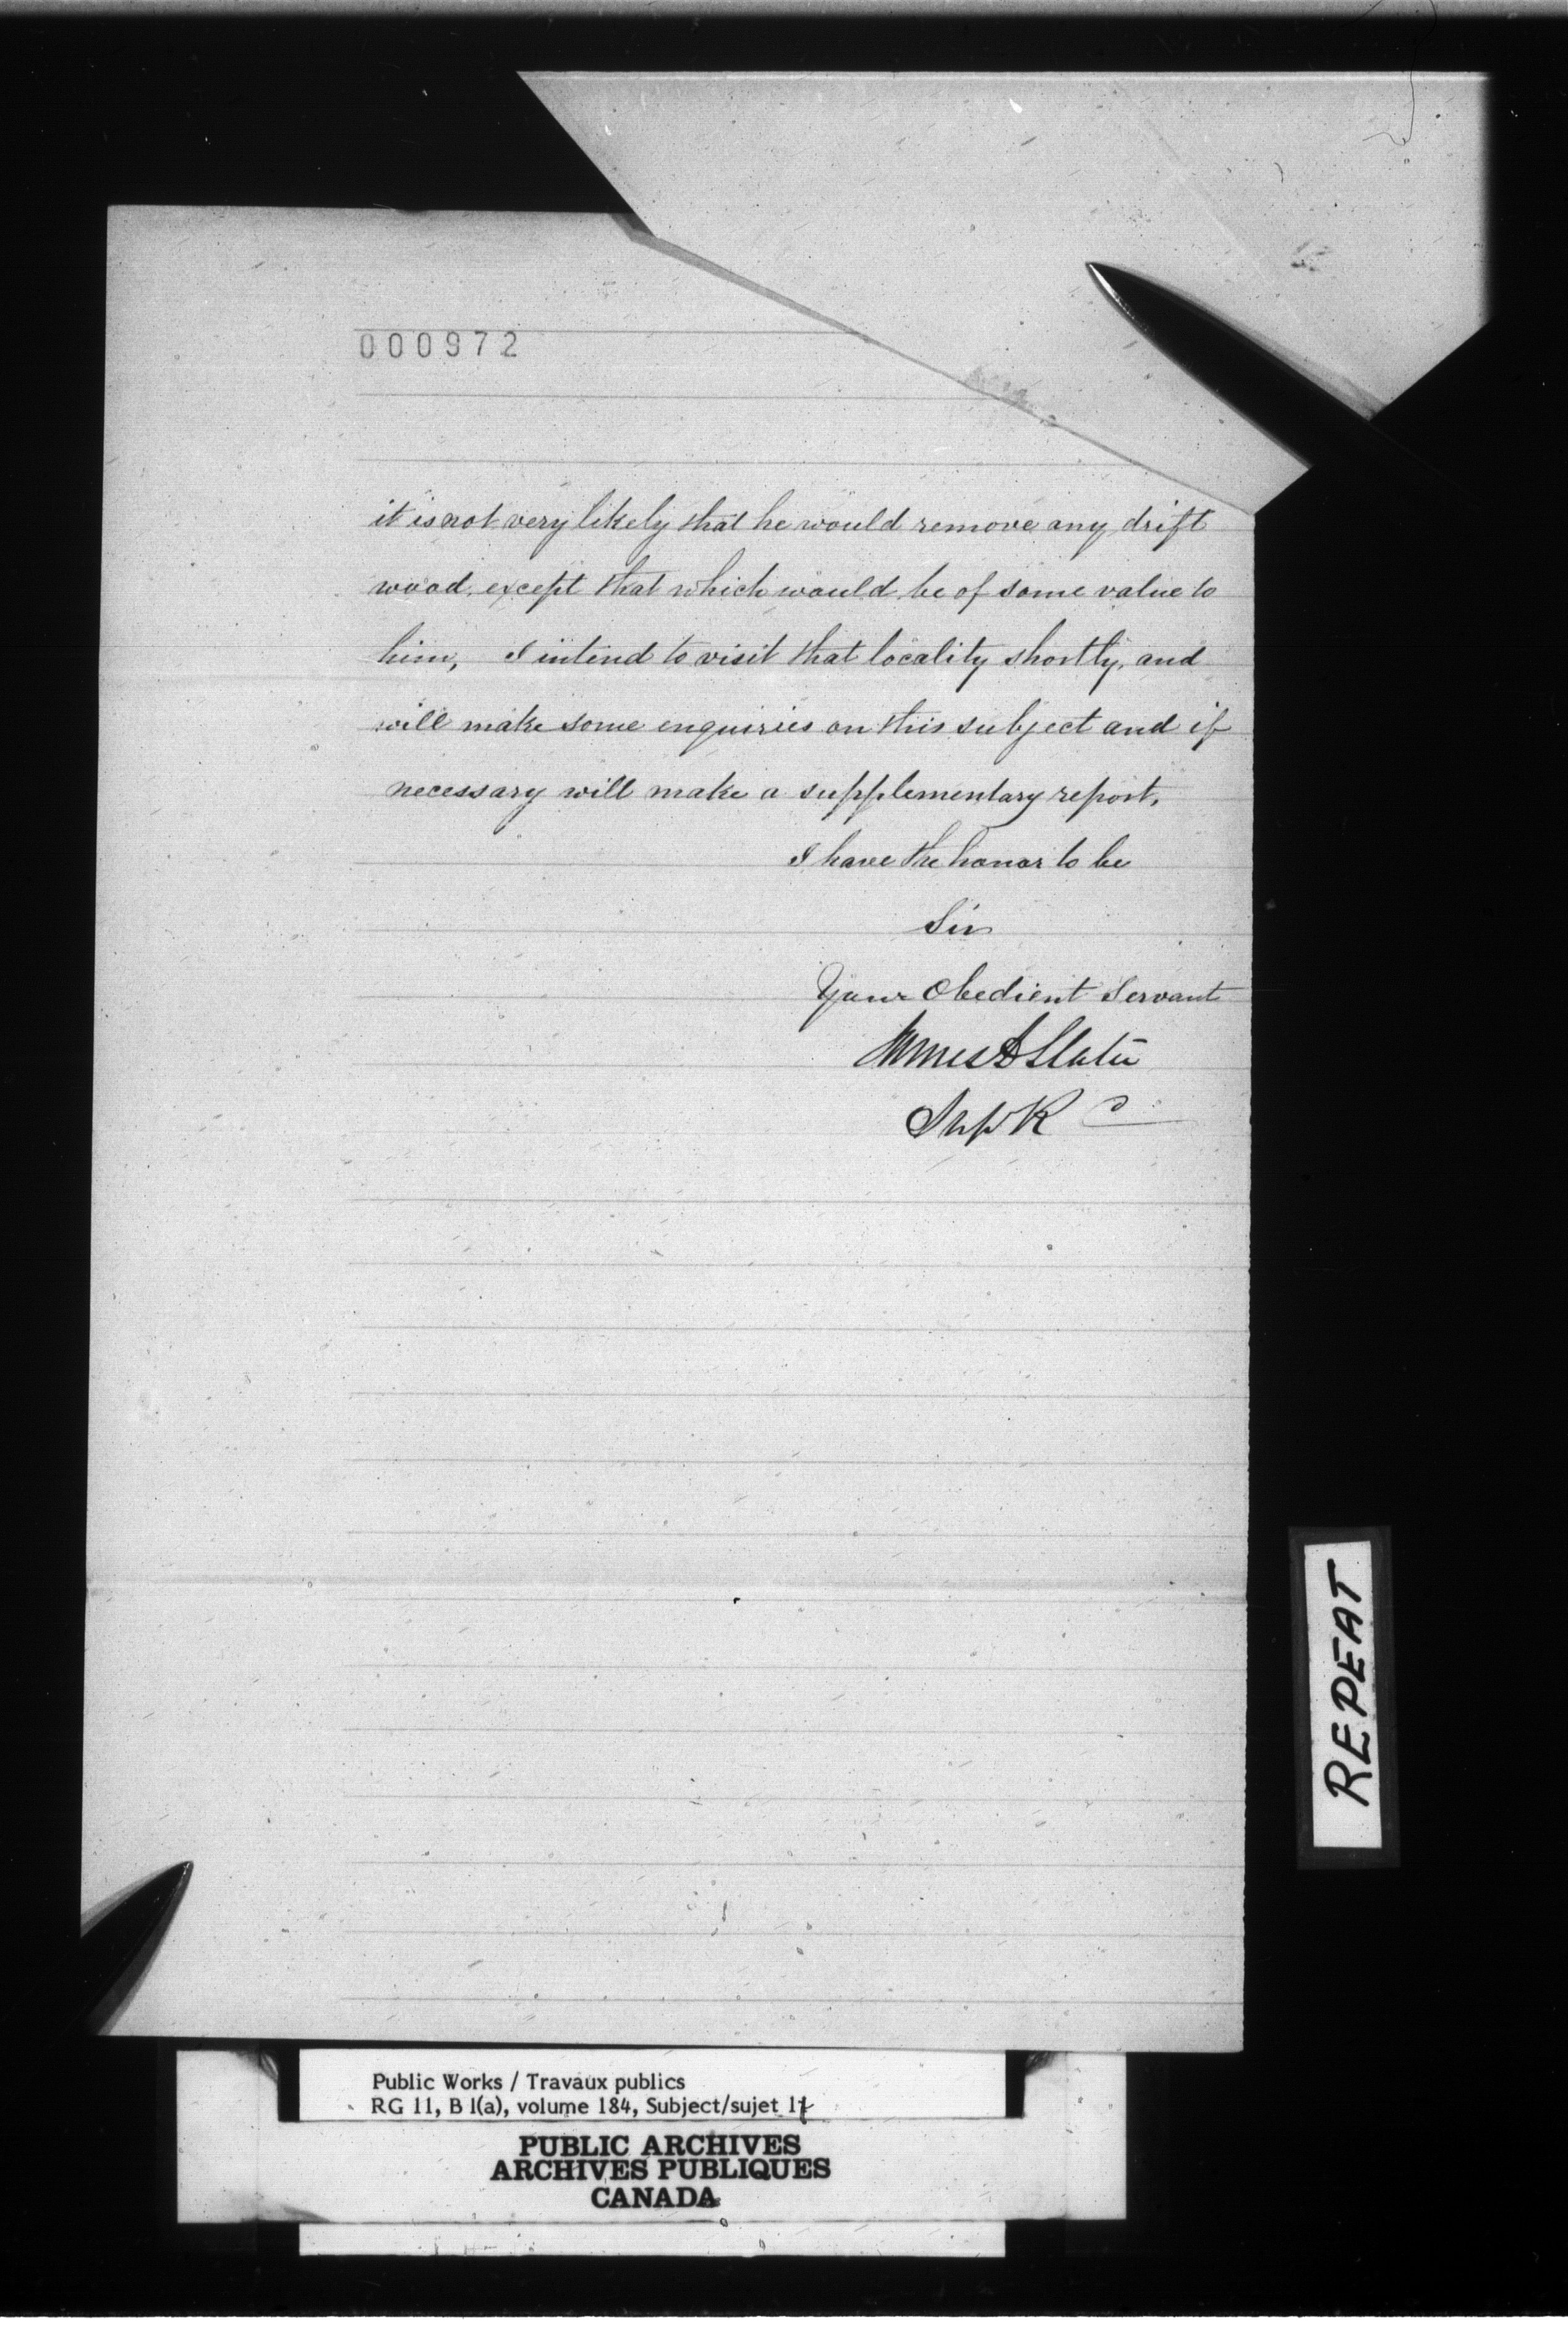 000972
it is not very likely that he would remove any drift
wood. except that which would be of some value to
him, I intend to visit that locality shortly, and
will make some enquiries on this subject and if
necessary will make a supplementary report.
I have the honor to be
Sir
Your Obedient Servant
James D Slater
Sup R C
REPEAT
Public Works / Travaux publics
RG 11, B 1(a), volume 184, Subject/sujet 17
PUBLIC ARCHIVES
ARCHIVES PUBLIQUES
CANADA